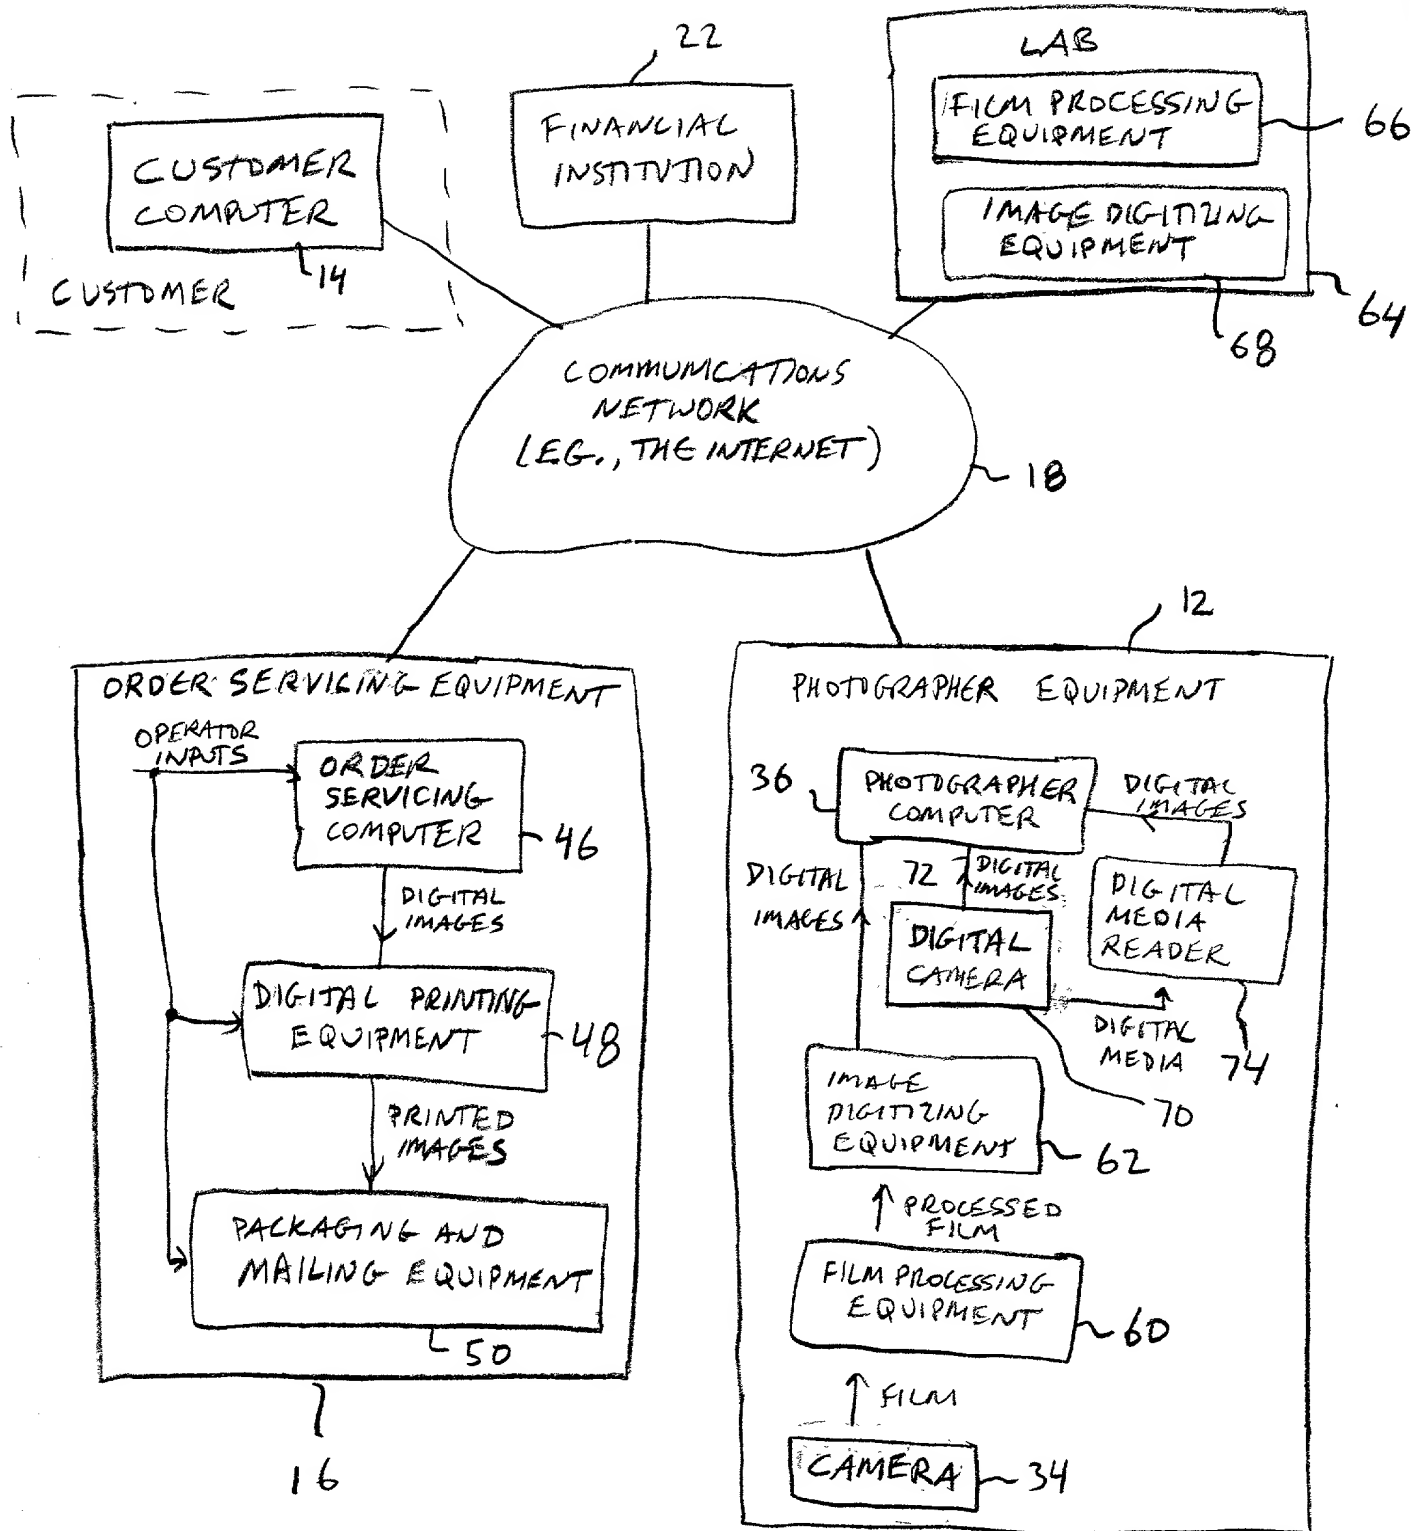 22
FINANCIAL
INSTITUTION
CUSTOMER
COMPUTER
14
CUSTOMER
LAB
FILM PROCESSING
EQUIPMENT
66
IMAGE DIGITIZING
EQUIPMENT
64
68
COMMUNICATIONS
NETWORK
(E.G., THE INTERNET)
18
ORDER SERVICING EQUIPMENT
OPERATOR
INPUTS
ORDER
SERVICING
COMPUTER
46
DIGITAL
IMAGES
DIGITAL PRINTING
EQUIPMENT
48
PRINTED
IMAGES
PACKAGING AND
MAILING EQUIPMENT
50
16
12
PHOTOGRAPHER EQUIPMENT
36
PHOTOGRAPHER
COMPUTER
DIGITAL
IMAGES
DIGITAL
IMAGES
72
DIGITAL
IMAGES
DIGITAL
MEDIA
READER
DIGITAL
CAMERA
DIGITAL
MEDIA
74
70
IMAGE
DIGITIZING
EQUIPMENT
62
PROCESSED
FILM
FILM PROCESSING
EQUIPMENT
60
FILM
CAMERA
34